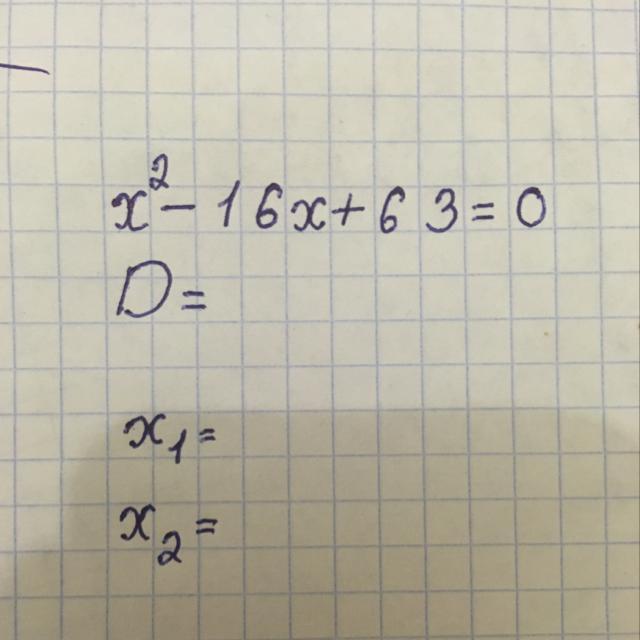 x² - 16x + 63 = 0
D =
x₁ =
x₂ =